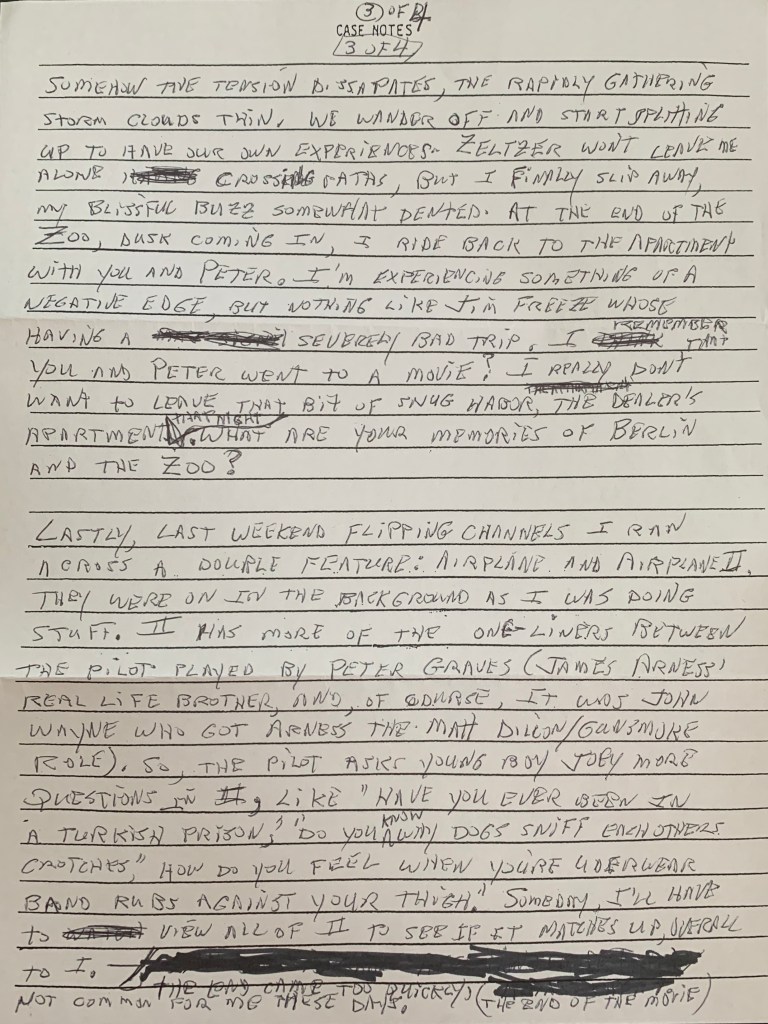 3 OF 4
CASE NOTES
3 OF 4
SOMEHOW THE TENSION DISSAPATES, THE RAPIDLY GATHERING
STORM CLOUDS THIN. WE WANDER OFF AND START SPLITTING
UP TO HAVE OUR OWN EXPERIENCES. ZELTZER WON'T LEAVE ME
ALONE CROSSING PATHS, BUT I FINALLY SLIP AWAY,
MY BLISSFUL BUZZ SOMEWHAT DENTED. AT THE END OF THE
ZOO, DUSK COMING IN, I RIDE BACK TO THE APARTMENT
WITH YOU AND PETER. I'M EXPERIENCING SOMETHING OF A
NEGATIVE EDGE, BUT NOTHING LIKE JIM FREEZE WHOSE
HAVING A SEVERELY BAD TRIP. I REMEMBER THAT
YOU AND PETER WENT TO A MOVIE? I REALLY DON'T
WANT TO LEAVE THAT BIT OF SNUG HABOR, THE DEALER'S
APARTMENT THAT NIGHT. WHAT ARE YOUR MEMORIES OF BERLIN
AND THE ZOO?
LASTLY, LAST WEEKEND FLIPPING CHANNELS I RAN
ACROSS A DOUBLE FEATURE: AIRPLANE AND AIRPLANE II.
THEY WERE ON IN THE BACKGROUND AS I WAS DOING
STUFF. II HAS MORE OF THE ONE-LINERS BETWEEN
THE PILOT PLAYED BY PETER GRAVES (JAMES ARNESS'
REAL LIFE BROTHER, AND, OF COURSE, IT WAS JOHN
WAYNE WHO GOT ARNESS THE MATT DILLON/GUNSMOKE
ROLE). SO, THE PILOT ASKS YOUNG BOY JOEY MORE
QUESTIONS IN II, LIKE "HAVE YOU EVER BEEN IN
A TURKISH PRISON," "DO YOU KNOW WHY DOGS SNIFF EACH OTHERS
CROTCHES," HOW DO YOU FEEL WHEN YOU'RE UDERWEAR
BAND RUBS AGAINST YOUR THIGH." SOMEDAY, I'LL HAVE
TO VIEW ALL OF II TO SEE IF IT MATCHES UP, OVERALL
TO I.
THE END CAME TOO QUICKLY, (THE END OF THE MOVIE)
NOT COMMON FOR ME THESE DAYS.